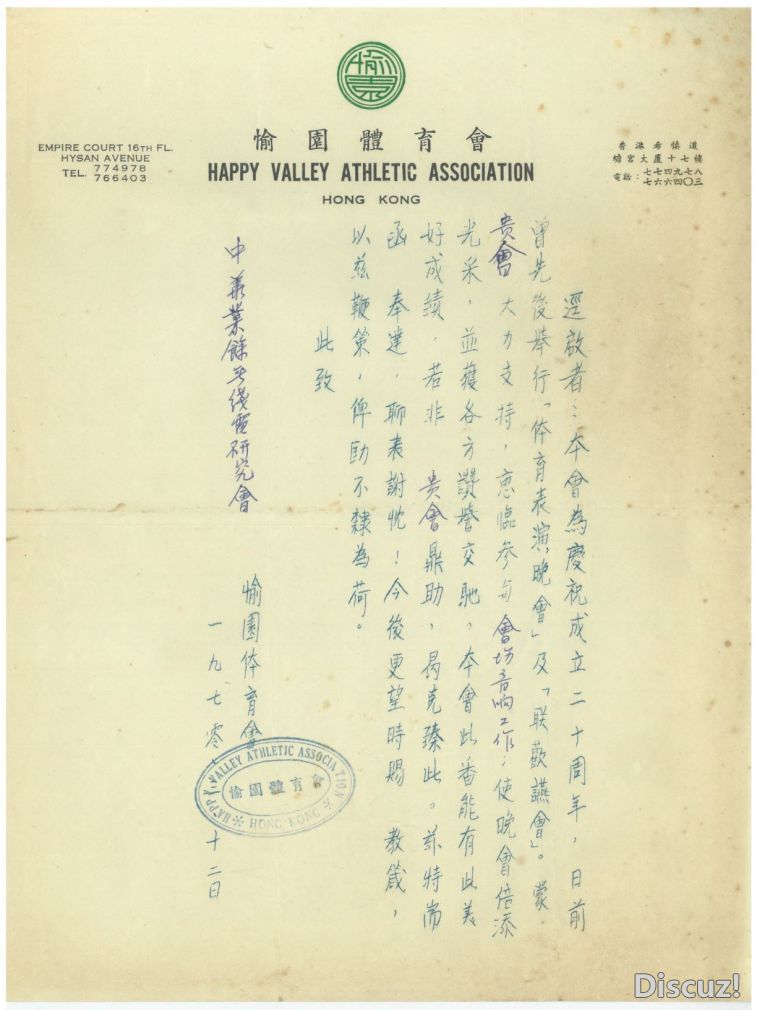 愉園體育會
HAPPY VALLEY ATHLETIC ASSOCIATION
HONG KONG
EMPIRE COURT 16TH FL.
HYSAN AVENUE
TEL. 774978
766403
香港希慎道
蟾宮大厦十七樓
電話：七七四九七八
七六六四〇三
逕啟者：本會為慶祝成立二十周年，日前
曾先後舉行「体育表演晚會」及「联歡讌會」。蒙
貴會 大力支持，惠臨參与會場音响工作；使晚會倍添
光采，並獲各方讚譽交馳，本會此番能有此美
好成績，若非 貴會鼎助，曷克臻此。茲特耑
函 奉達，聊表謝忱！今後更望時賜 教箴，
以茲鞭策，俾励不隸為荷。
此致
中華業餘无綫電研究會
愉園体育會
一九七零 十二日
HAPPY VALLEY ATHLETIC ASSOCIATION
愉園體育會
HONG KONG
Discuz!